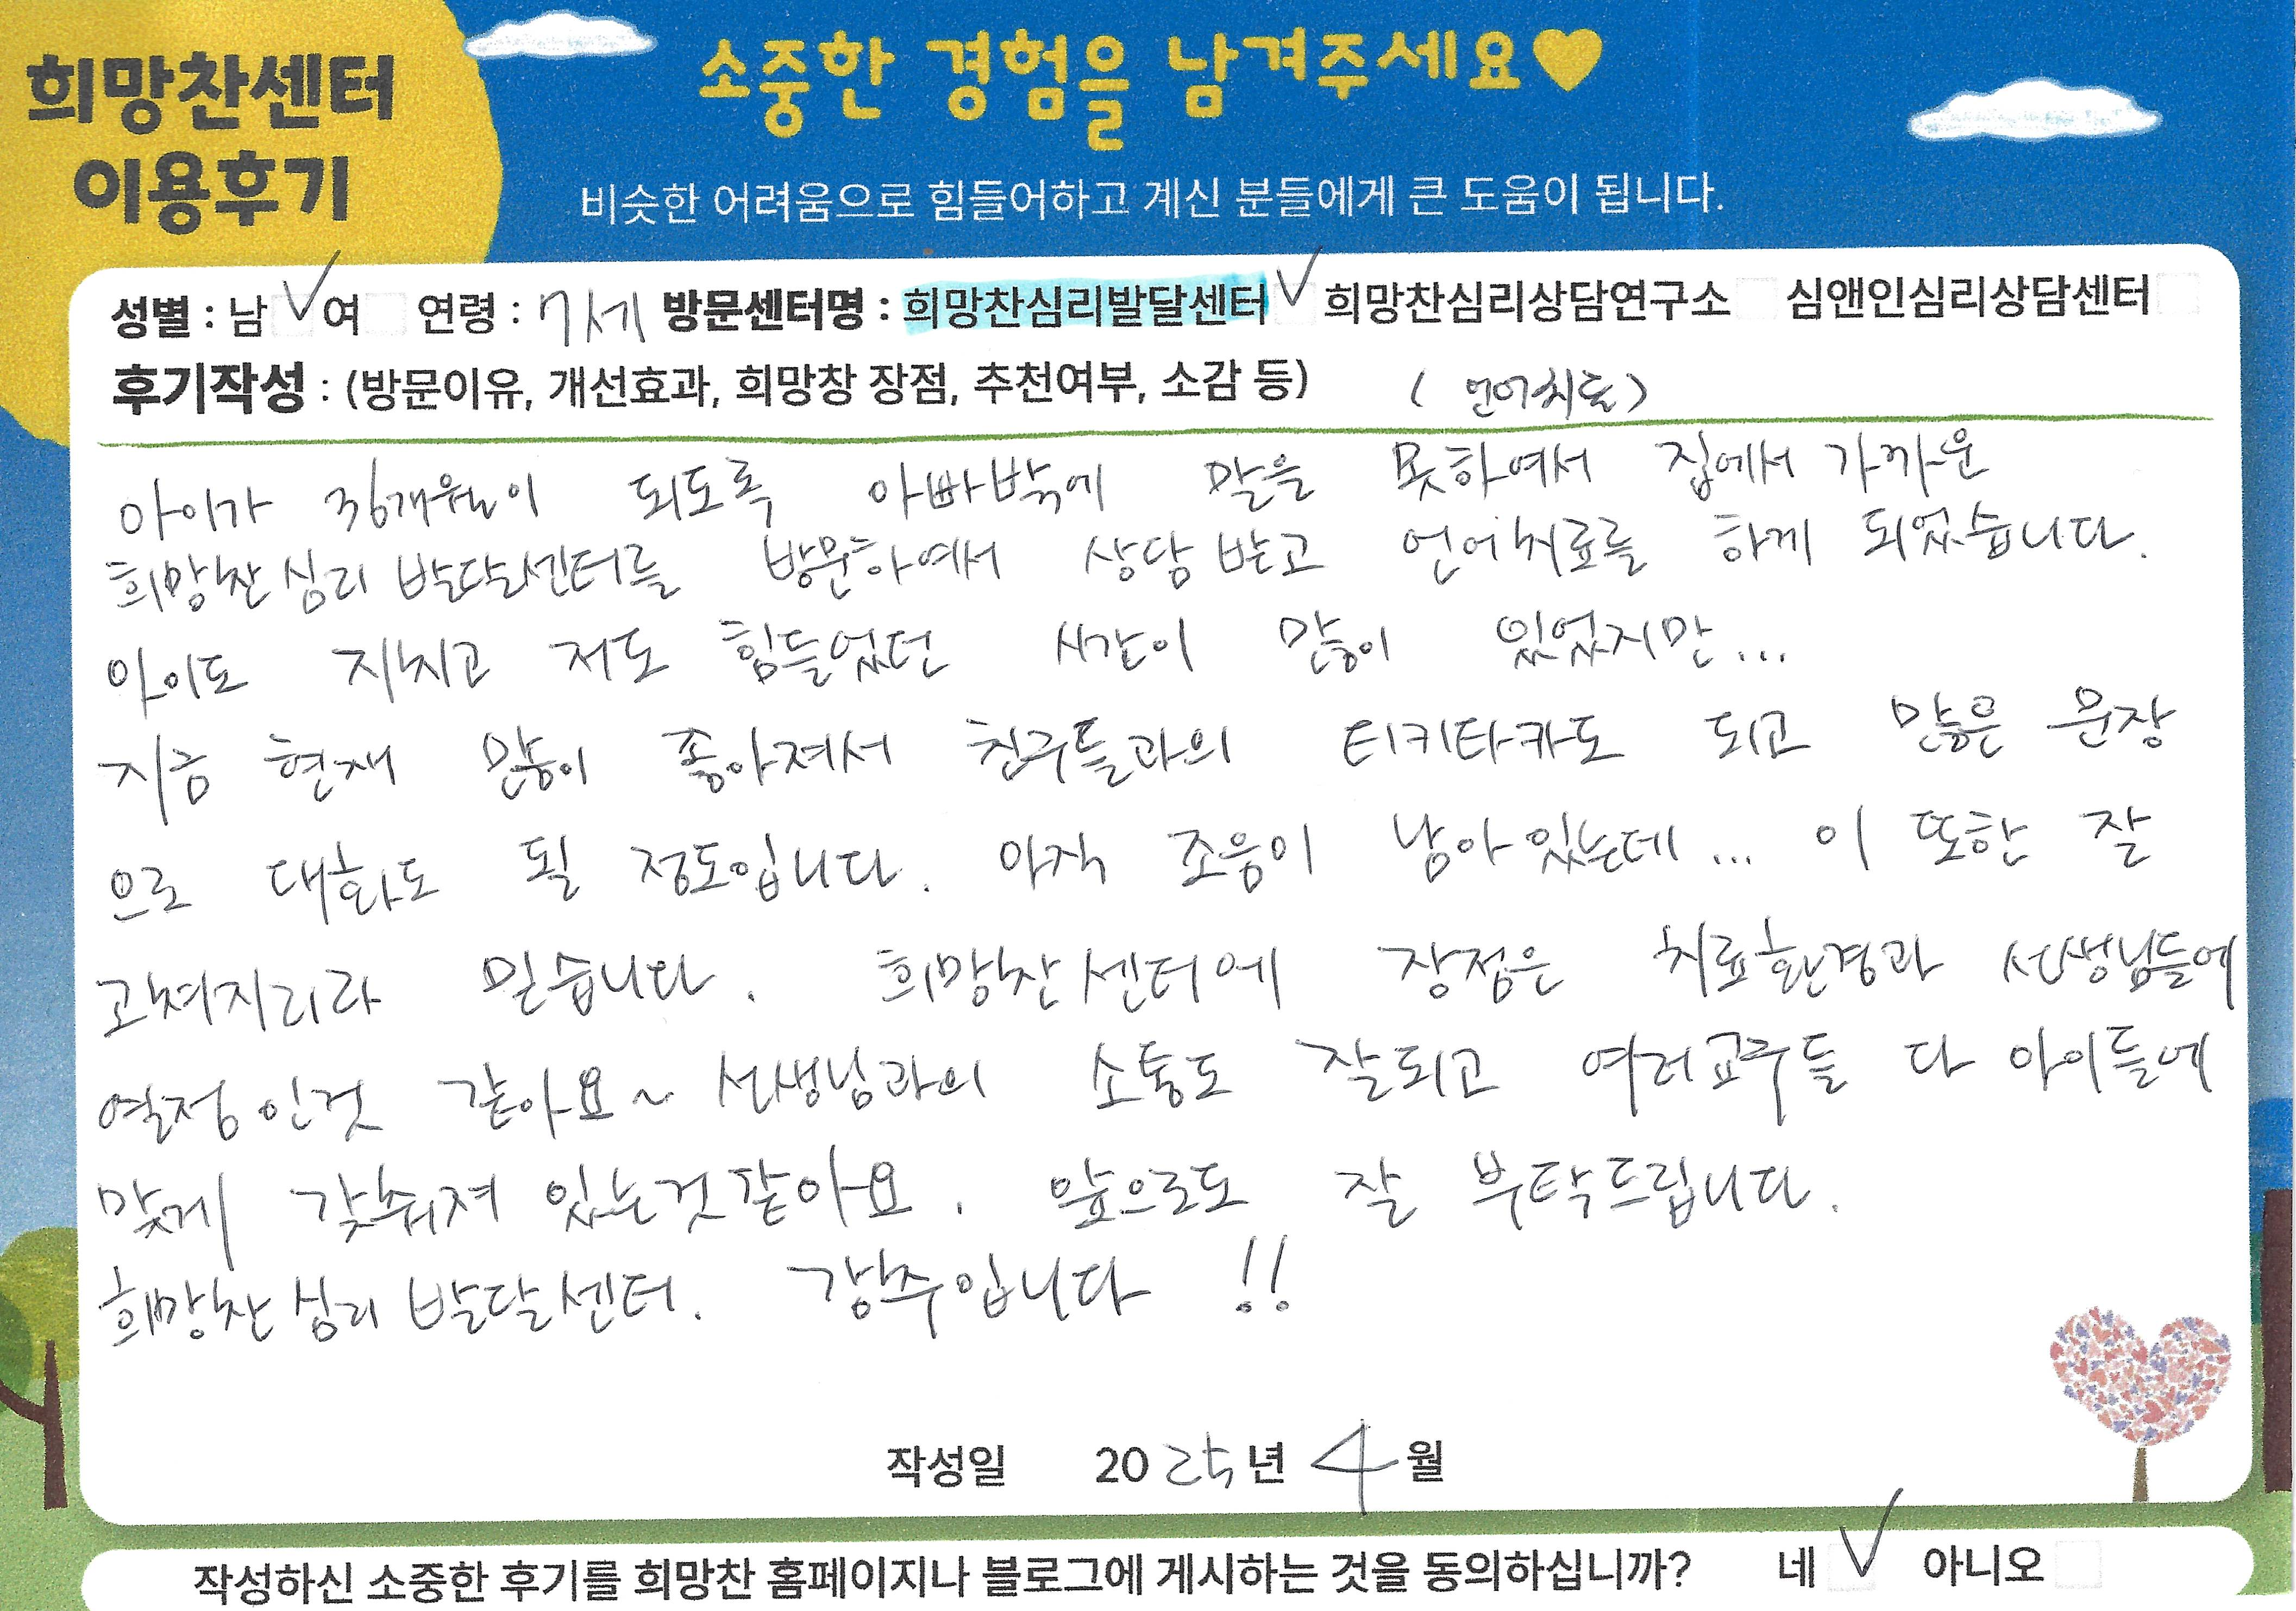 희망찬센터
이용후기
소중한 경험을 남겨주세요♥
비슷한 어려움으로 힘들어하고 계신 분들에게 큰 도움이 됩니다.
성별 : 남 ✓ 여 연령 : 7세 방문센터명 : 희망찬심리발달센터 ✓ 희망찬심리상담연구소 심앤인심리상담센터
후기작성 : (방문이유, 개선효과, 희망창 장점, 추천여부, 소감 등) (언어치료)
아이가 36개월이 되도록 아빠밖에 말을 못하여서 집에서 가까운
희망찬심리발달센터를 방문하여서 상담받고 언어치료를 하게 되었습니다.
아이도 지치고 저도 힘들었던 시간이 많이 있었지만...
지금 현재 많이 좋아져서 친구들과의 티키타카도 되고 많은 문장
으로 대화도 될 정도입니다. 아직 조음이 남아있는데... 이 또한 잘
고쳐지리라 믿습니다. 희망찬센터에 장점은 치료환경과 선생님들에
열정인것 같아요~ 선생님과의 소통도 잘되고 여러교구들 다 아이들에
맞게 갖춰져 있는것같아요. 앞으로도 잘 부탁드립니다.
희망찬심리발달센터. 강추입니다!!
작성일 2025년 4월
작성하신 소중한 후기를 희망찬 홈페이지나 블로그에 게시하는 것을 동의하십니까? 네 ✓ 아니오